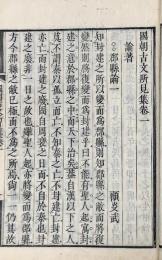 國朝古文所見集卷一
論著
郡縣論一
顧炎武
知封建之所以變而爲郡縣則知郡縣之敝而將復
變然則將復變而爲封建乎曰不能有聖人起寓封
建之意於郡縣之中而天下治矣蓋自漢以下之人
莫不謂秦以孤立而亡不知秦之亡不封建亡封建
亦亡而封建之廢固自周衰之日而不自於秦也封
建之廢非一日之故也雖聖人起亦將變而爲郡縣
方今郡縣之敝已極而無聖人出焉尚一一仍其故